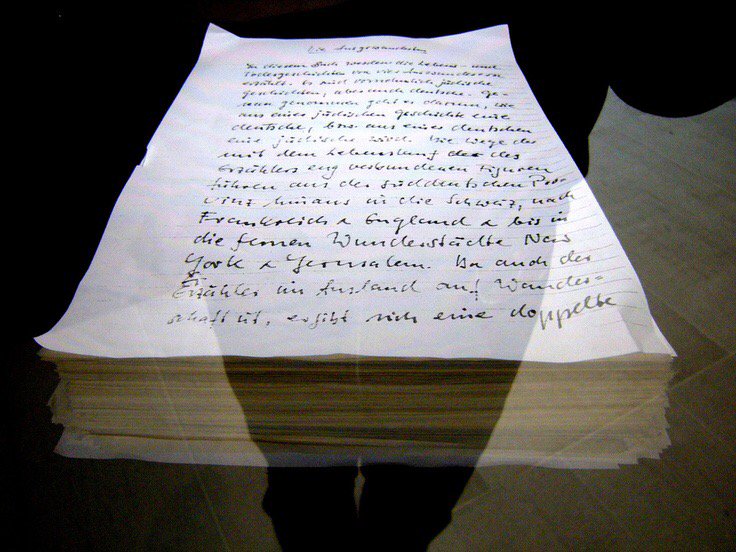 Die Ausgewanderten
In diesem Buch werden die Lebens- und
Todesgeschichten von vier Ausgewanderten
erzählt. Es sind vornehmlich jüdische
Geschichten, aber auch deutsche. Ge-
nau genommen geht es darum, wie
aus einer jüdischen Geschichte eine
deutsche, bzw aus einer deutschen
eine jüdische wird. Die Wege der
mit dem Lebenslauf des
Erzählers eng verbundenen Figuren
führen aus der süddeutschen Pro-
vinz hinaus in die Schweiz, nach
Frankreich & England & bis in
die fernen Wunderstädte New
York & Jerusalem. Da auch der
Erzähler im Ausland auf Wander-
schaft ist, ergibt sich eine doppelte